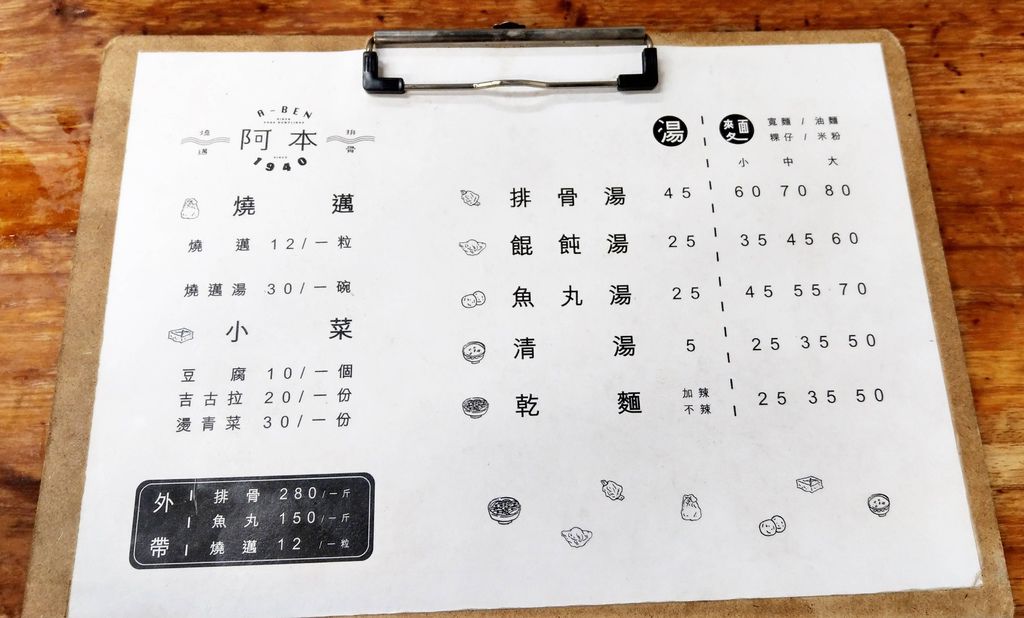 A-BEN
燒邁
阿本
排骨
SINCE
1940
燒邁
燒邁 12/一粒
燒邁湯 30/一碗
小菜
豆腐 10/一個
吉古拉 20/一份
燙青菜 30/一份
外帶
排骨 280/一斤
魚丸 150/一斤
燒邁 12/一粒
湯 麵 寬麵/油麵
粿仔/米粉
小 中 大
排骨湯 45 60 70 80
餛飩湯 25 35 45 60
魚丸湯 25 45 55 70
清湯 5 25 35 50
乾麵 加辣 不辣 25 35 50